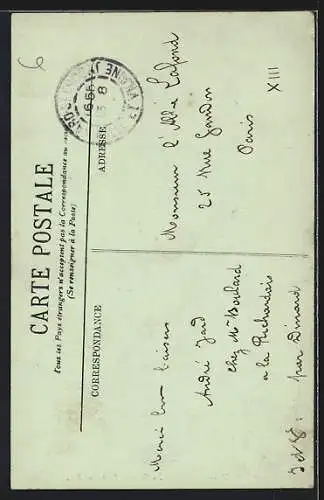 CARTE POSTALE
Tous les Pays étrangers n'acceptent pas la Correspondance au
(Se renseigner à la Poste)
CORRESPONDANCE
ADRESSE
6
Monsieur l'Abbé Lafond
25 Rue Gandon
Paris
XIII
Merci bons baisers
André Jard
chez Mr Boulard
a la Richardais
par Dinard